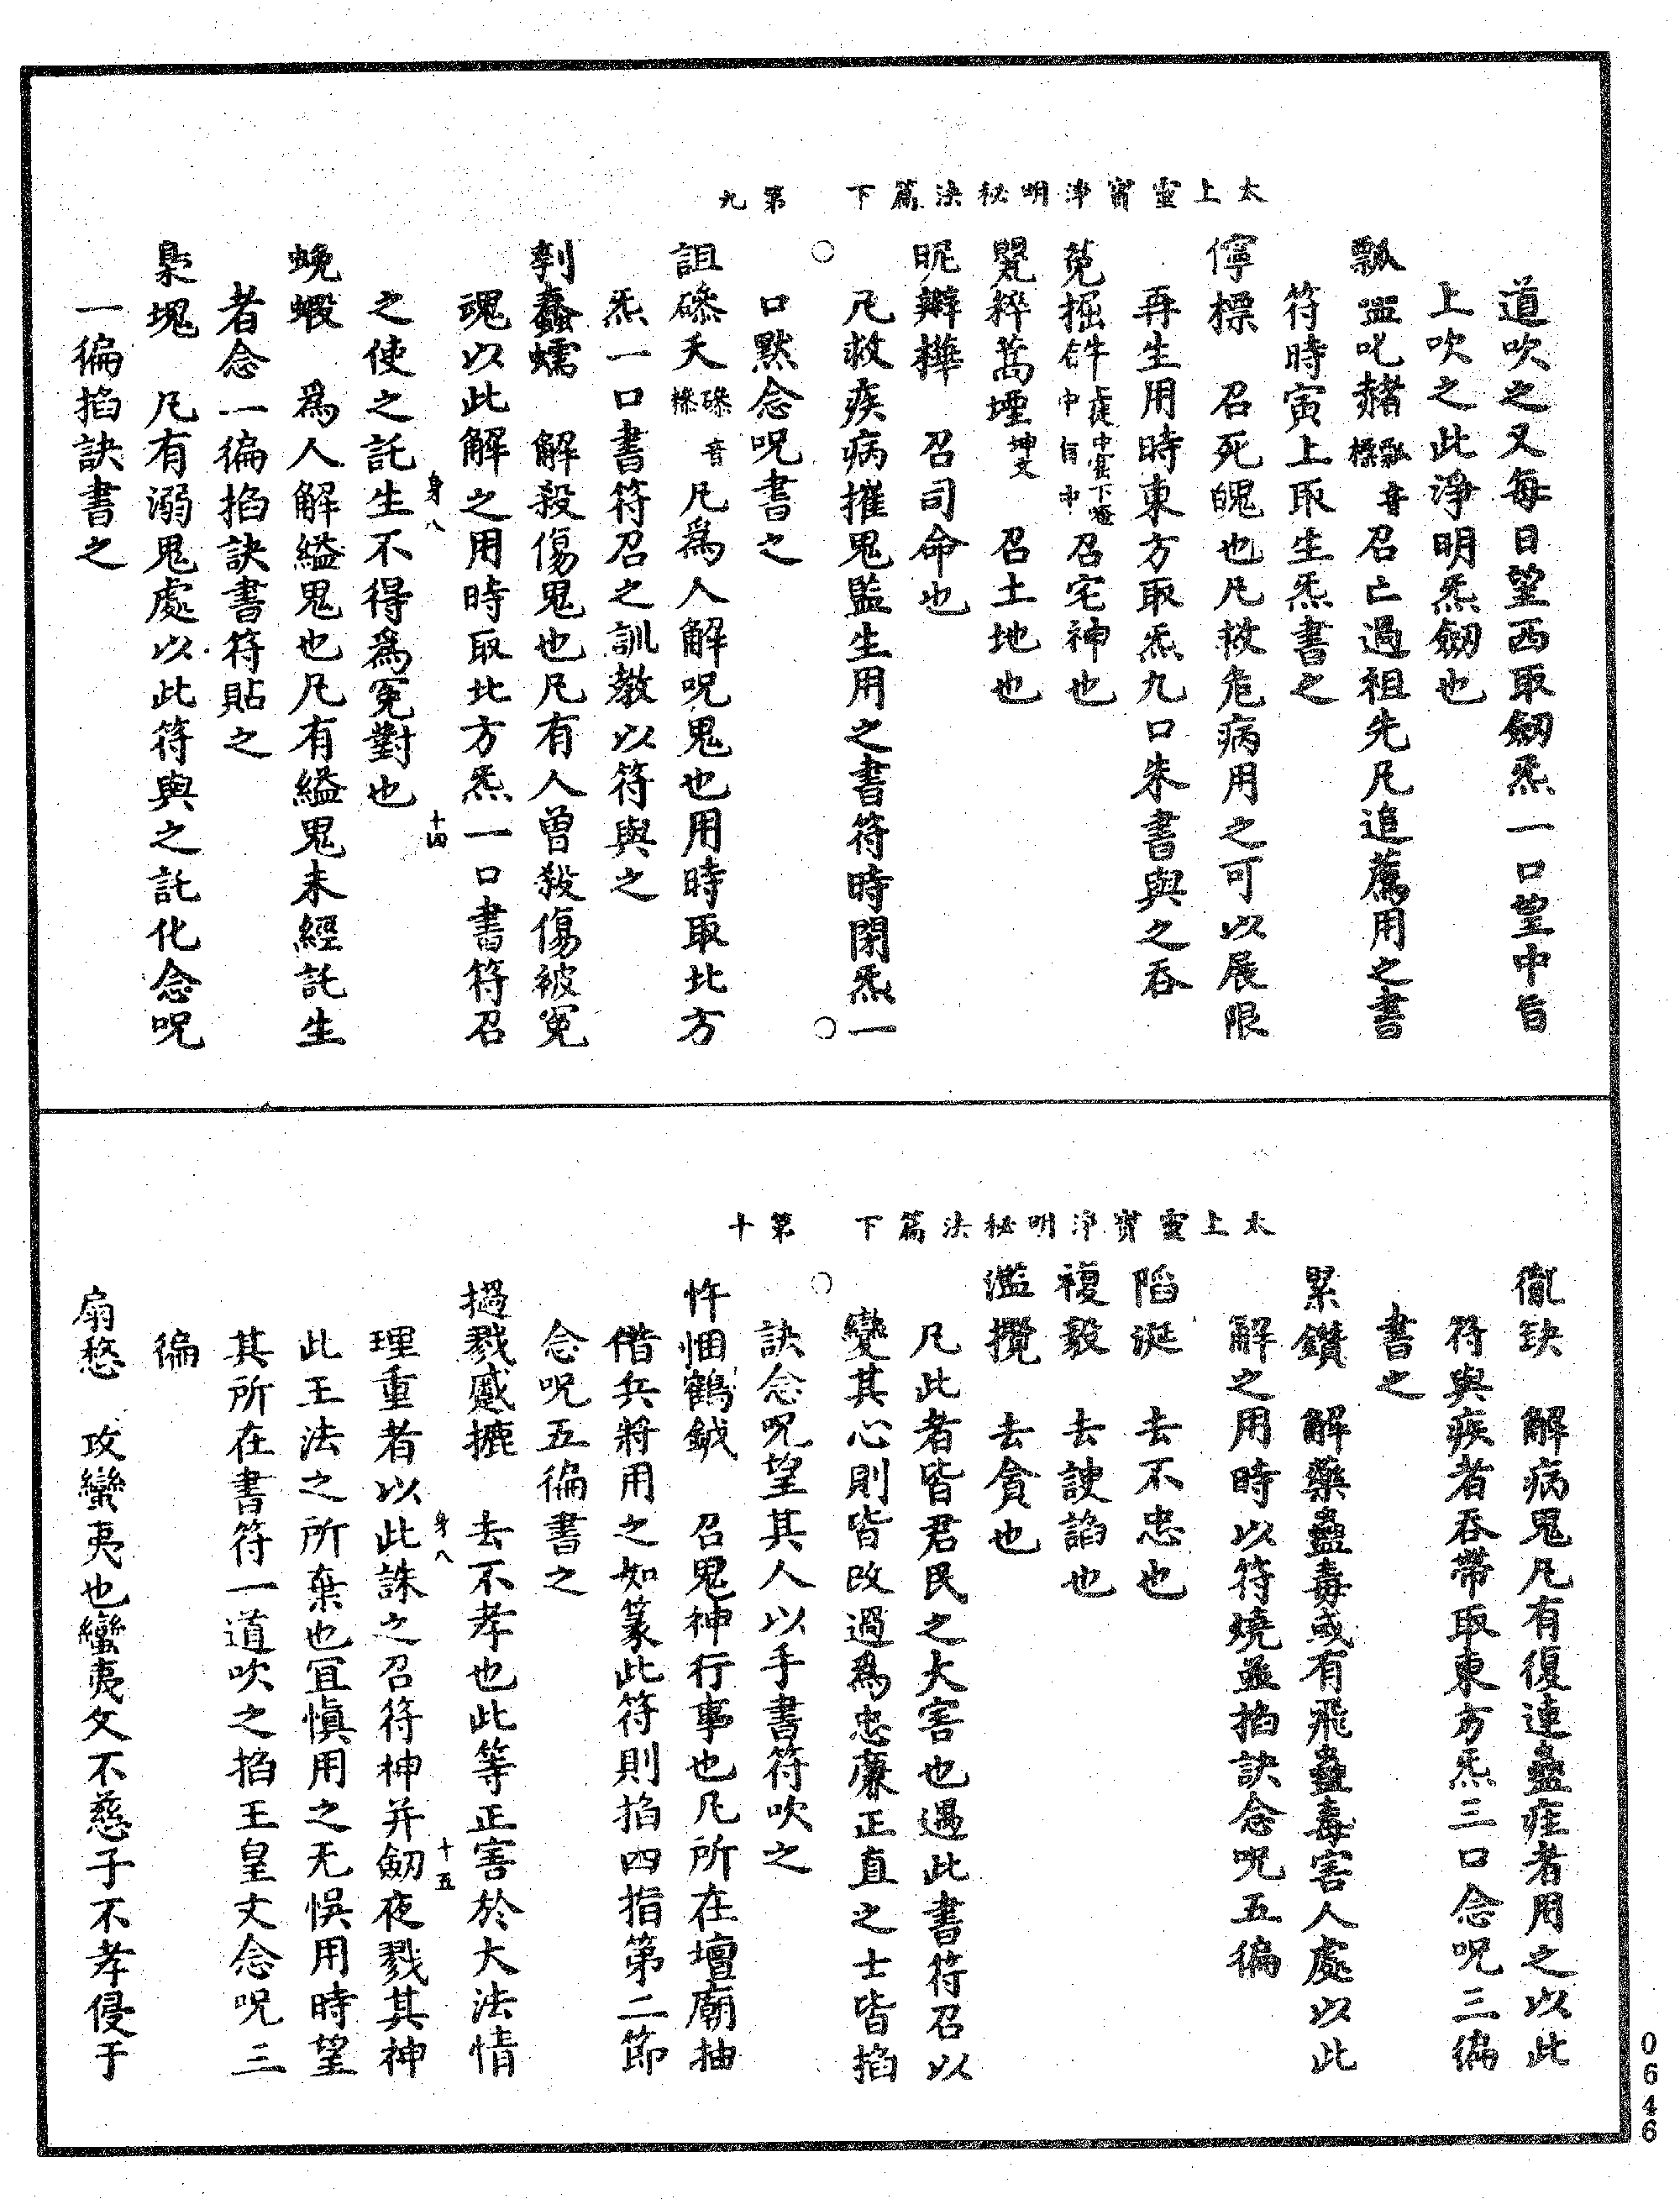 太上靈寳淨明秘法篇下　第九
道吹之又每日望西取劒炁一口望中旨
上吹之此淨明炁劒也
瓢盀叱赭瓢音標召亡過祖先凡追薦用之書
符時寅上取生炁書之
儜標　召死魄也凡救危病用之可以展限
再生用時東方取炁九口朱書與之吞
萈掘　召宅神也
甖粹萬堙坤文　召土地也
昵辮樺　召司命也
凡救疾病摧鬼監生用之書符時閉炁一
口默念呪書之
詛磉天磉音　凡為人解呪鬼也用時取北方
炁一口書符召之訓教以符與之
剨蠢蠕　解殺傷鬼也凡有人曾殺傷被冤
魂以此解之用時取北方炁一口書符召
身八　十四
之使之託生不得為冤對也
蜿蝦　為人解縊鬼也凡有縊鬼未經託生
者念一徧掐訣書符貼之
梟塊　凡有溺鬼處以此符與之託化念呪
一徧掐訣書之
太上靈寳淨明秘法篇下　第十
胤玦　解病鬼凡有復連蠱疰者用之以此
符與疾者吞帶取東方炁三口念呪三徧
書之
累鑽　解藥蠱毒或有飛蠱毒害人處以此
解之用時以符燒並掐訣念呪五徧
陷涎　去不忠也
複毅　去諛諂也
濫攪　去貪也
凡此者皆君民之大害也遇此書符召以
變其心則皆改過為忠廉正直之士皆掐
訣念呪望其人以手書符吹之
忤悃鶴鉞　召鬼神行事也凡所在壇廟抽
借兵將用之如篆此符則掐四指第二節
念呪五徧書之
撾戮慼摭　去不孝也此等正害於大法情
身八　十五
理重者以此誅之召符神并劒夜戮其神
此王法之所棄也冝慎用之无悞用時望
其所在書符一道吹之掐王皇文念呪三
徧
扇愁　攻蠻夷也蠻夷父不慈子不孝侵于
0646